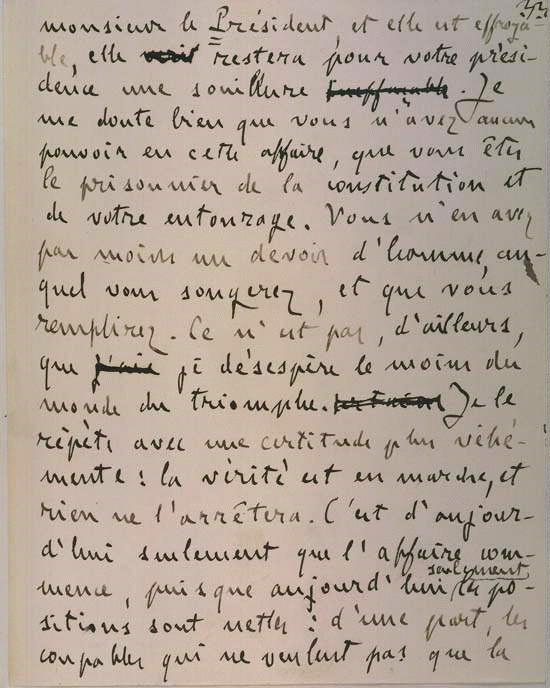 monsieur le Président, et elle est effroya-
ble, elle restera pour votre prési-
dence une souillure ineffaçable. Je
me doute bien que vous n'avez aucun
pouvoir en cette affaire, que vous êtes
le prisonnier de la constitution et
de votre entourage. Vous n'en avez
pas moins un devoir d'homme, au-
quel vous songerez, et que vous
remplirez. Ce n'est pas, d'ailleurs,
que j'ai je désespère le moins du
monde du triomphe. Je le
répète avec une certitude plus véhé-
mente : la vérité est en marche, et
rien ne l'arrêtera. C'est d'aujour-
d'hui seulement que l'affaire com-
mence, puisque aujourd'hui seulement les po-
sitions sont nettes : d'une part, les
coupables qui ne veulent pas que la